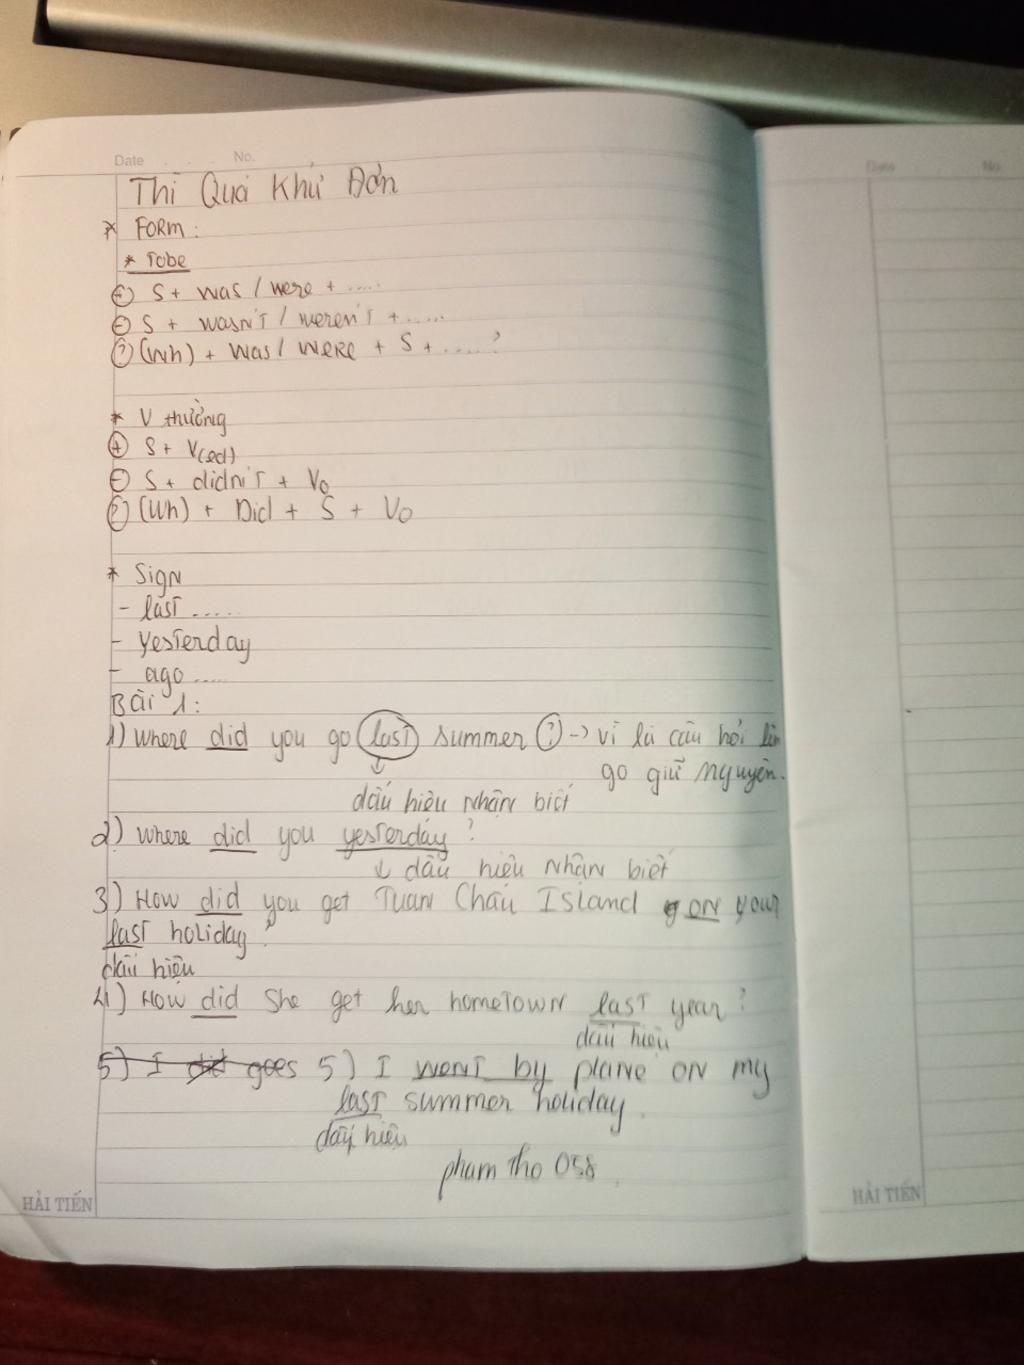 Date . . . No.
Thì Quá Khứ Đơn
* FORM :
* Tobe
(+) S + was / were + .....
(-) S + wasn't / weren't + .....
(?) (Wh) + was / were + S + .....?
* V thường
(+) S + V(ed)
(-) S + didn't + Vo
(?) (Wh) + Did + S + Vo
* Sign
- last .....
- yesterday
- ago .....
Bài 1:
1) where did you go last summer ? -> vì là câu hỏi lên
go giữ nguyên.
dấu hiệu nhận biết
2) where did you yesterday ?
↓ dấu hiệu nhận biết
3) How did you get Tuan Chau Island on your
last holiday ?
dấu hiệu
4) How did she get her hometown last year ?
dấu hiệu
5) I did goes 5) I went by plane on my
last summer holiday.
dấu hiệu
pham tho 058
HẢI TIẾN
Date No
HẢI TIẾN